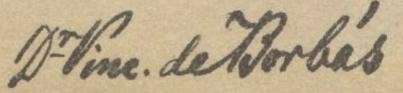 Dr Vinc. de Borbás